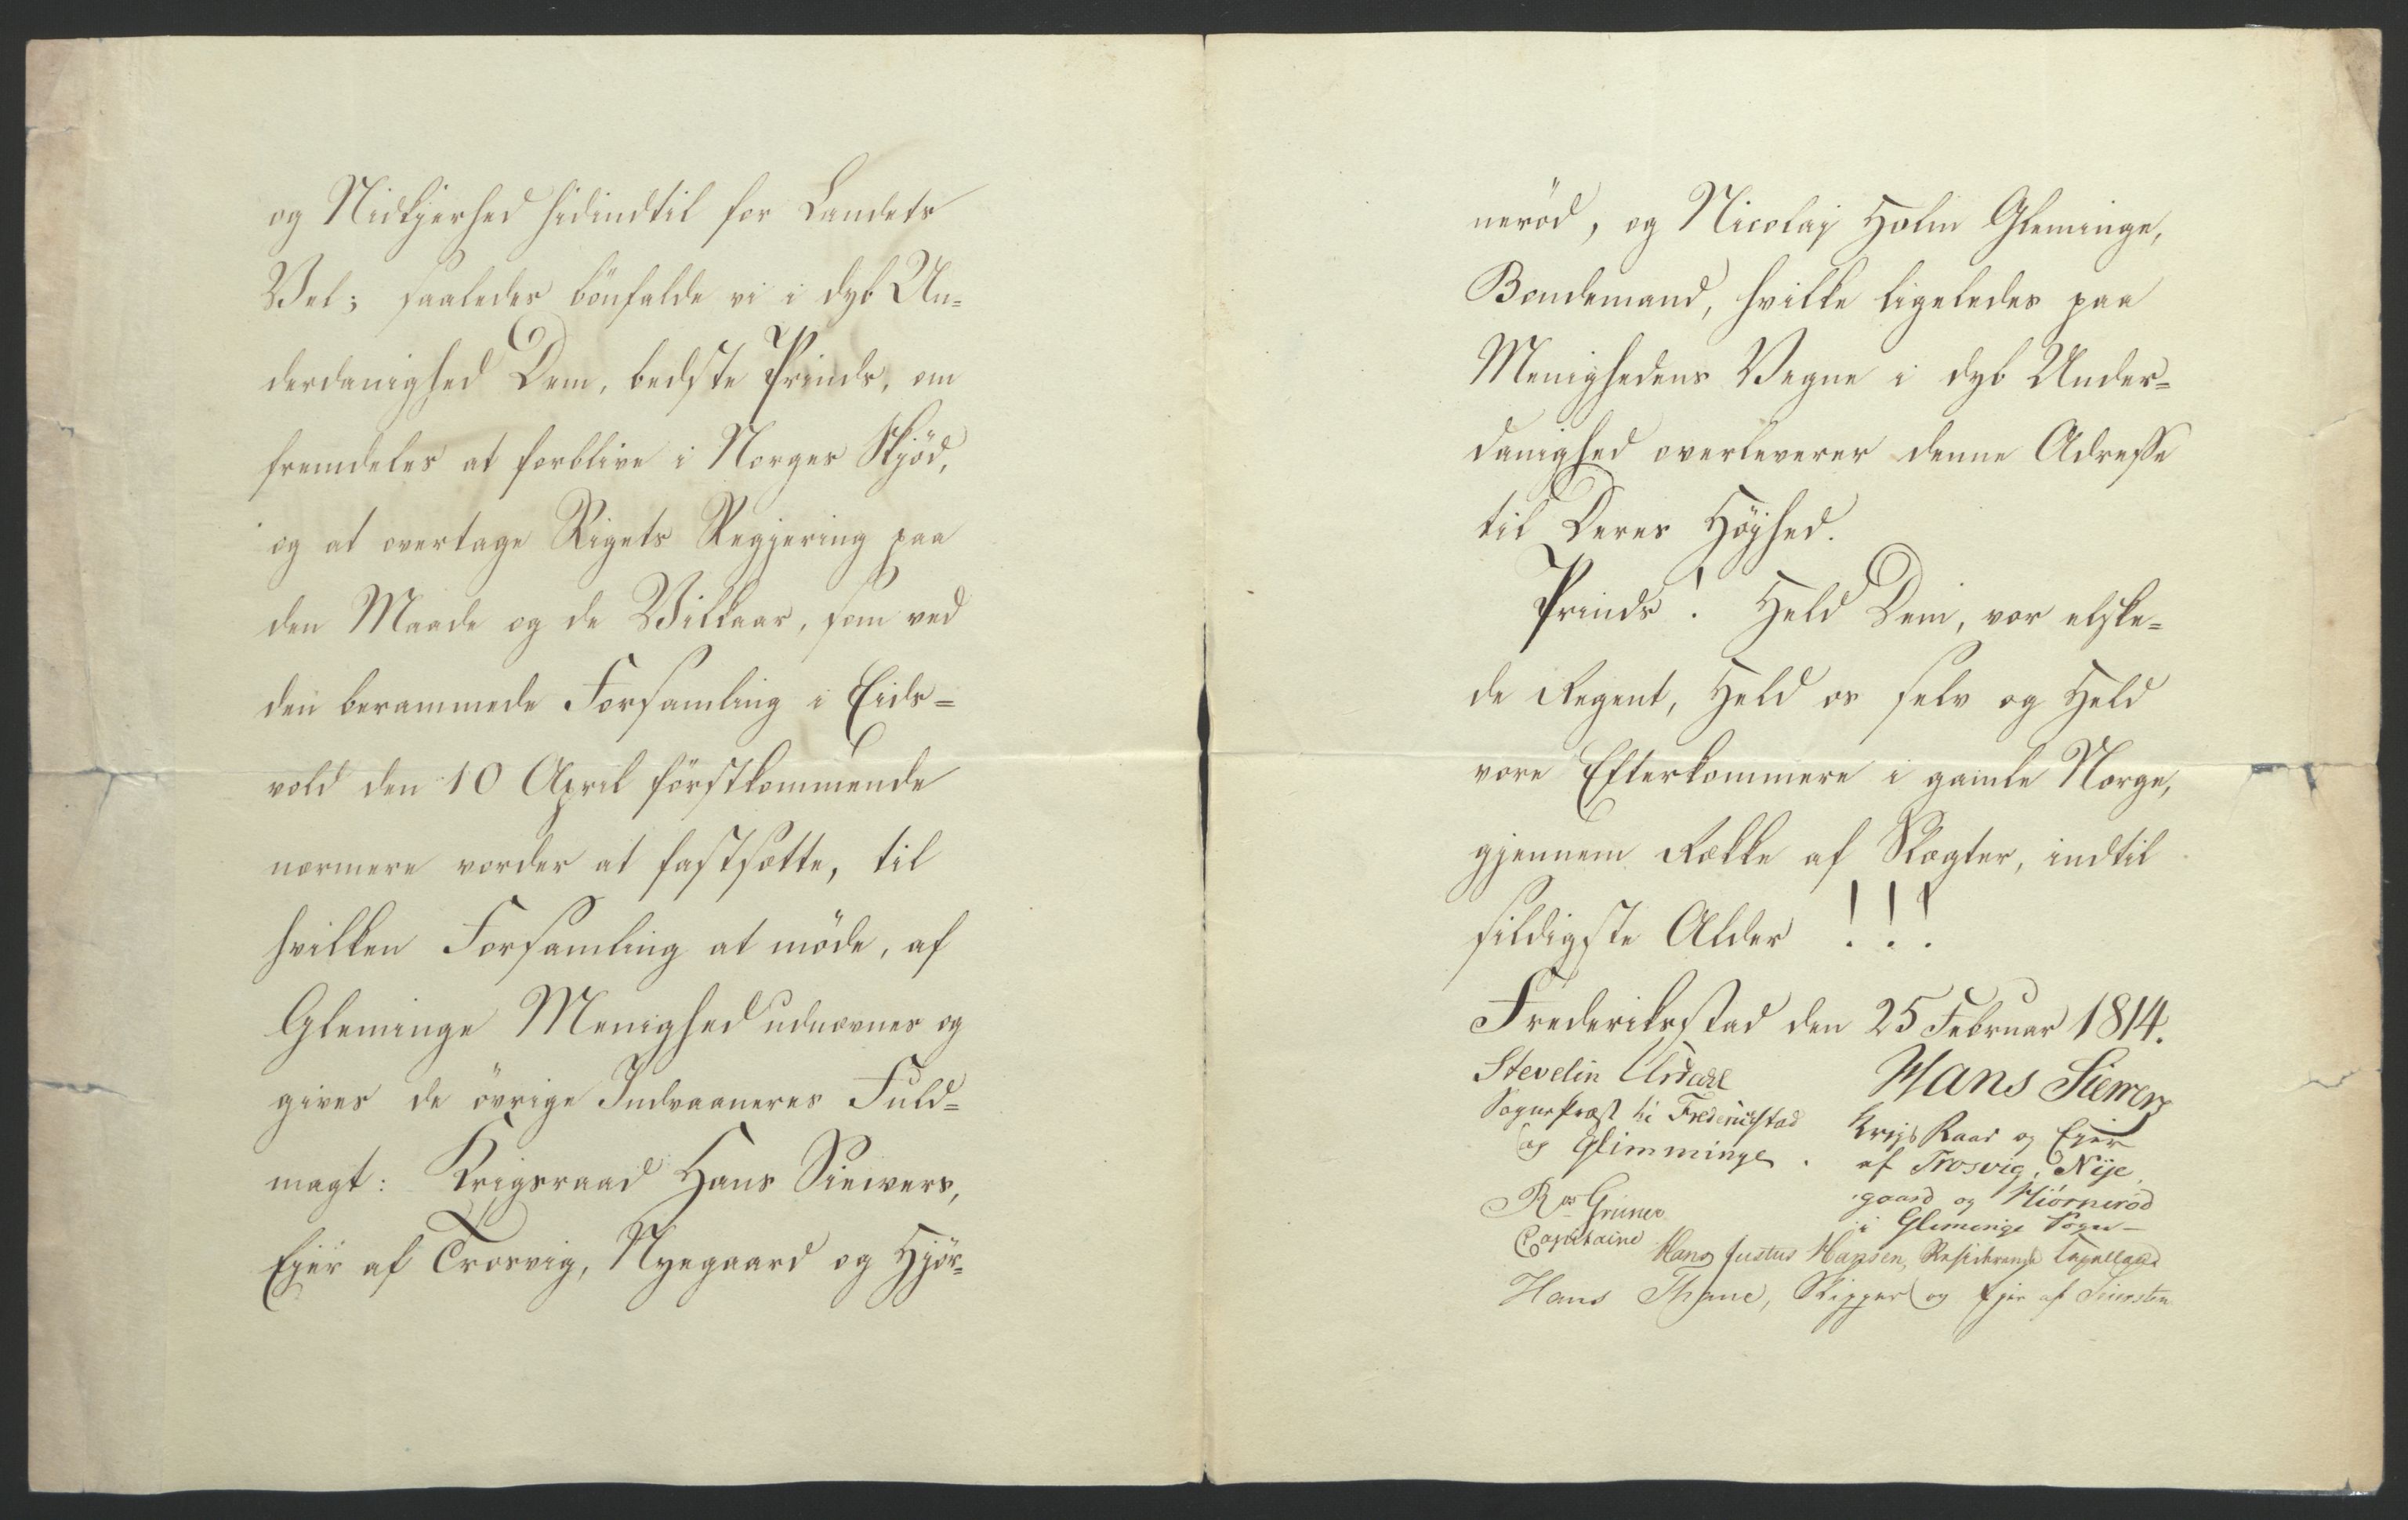 og Nidkjerhed hidindtil for Landets
Vel; saaledes bönfalde vi i dyb Un=
derdanighed Dem, bedste Prinds, om
fremdeles at forblive i Norges Skjöd,
og at overtage Rigets Regjering paa
den Maade og de Vilkaar, som ved
den berammede Forsamling i Eids=
vold den 10 April förstkommende
nærmere vorder at fastsætte, til
hvilken Forsamling at möde, af
Gleminge Menighed udnævnes og
gives de övrige Indvaaneres Fuld=
magt: Krigsraad Hans Siewers,
Ejer af Trosvig, Nyegaard og Hjör=
neröd, og Nicolaj Holm Gleminge,
Bondemand, hvilke ligeledes paa
Menighedens Vegne i dyb Under=
danighed overleverer denne Adresse
til Deres Höjhed.
Prinds! Held Dem, vor elske=
de Regent, Held os selv og Held
vore Efterkommere i gamle Norge,
gjennem Række af Slægter, indtil
sildigste Alder !!!
Frederiksstad den 25 Februar 1814.
Stevelin Urdahl
Sogne Præst til Fredericstad
og Glimminge.
Hans Siewers
Krigs Raad og Ejer
af Trosvig, Nije
gaard og Hiörneröd
i Gleminge Sogn
Grüner
Capitaine
Hans Justus Hansen, Residerende Capellan
Hans Thrane, Skipper og Ejer af